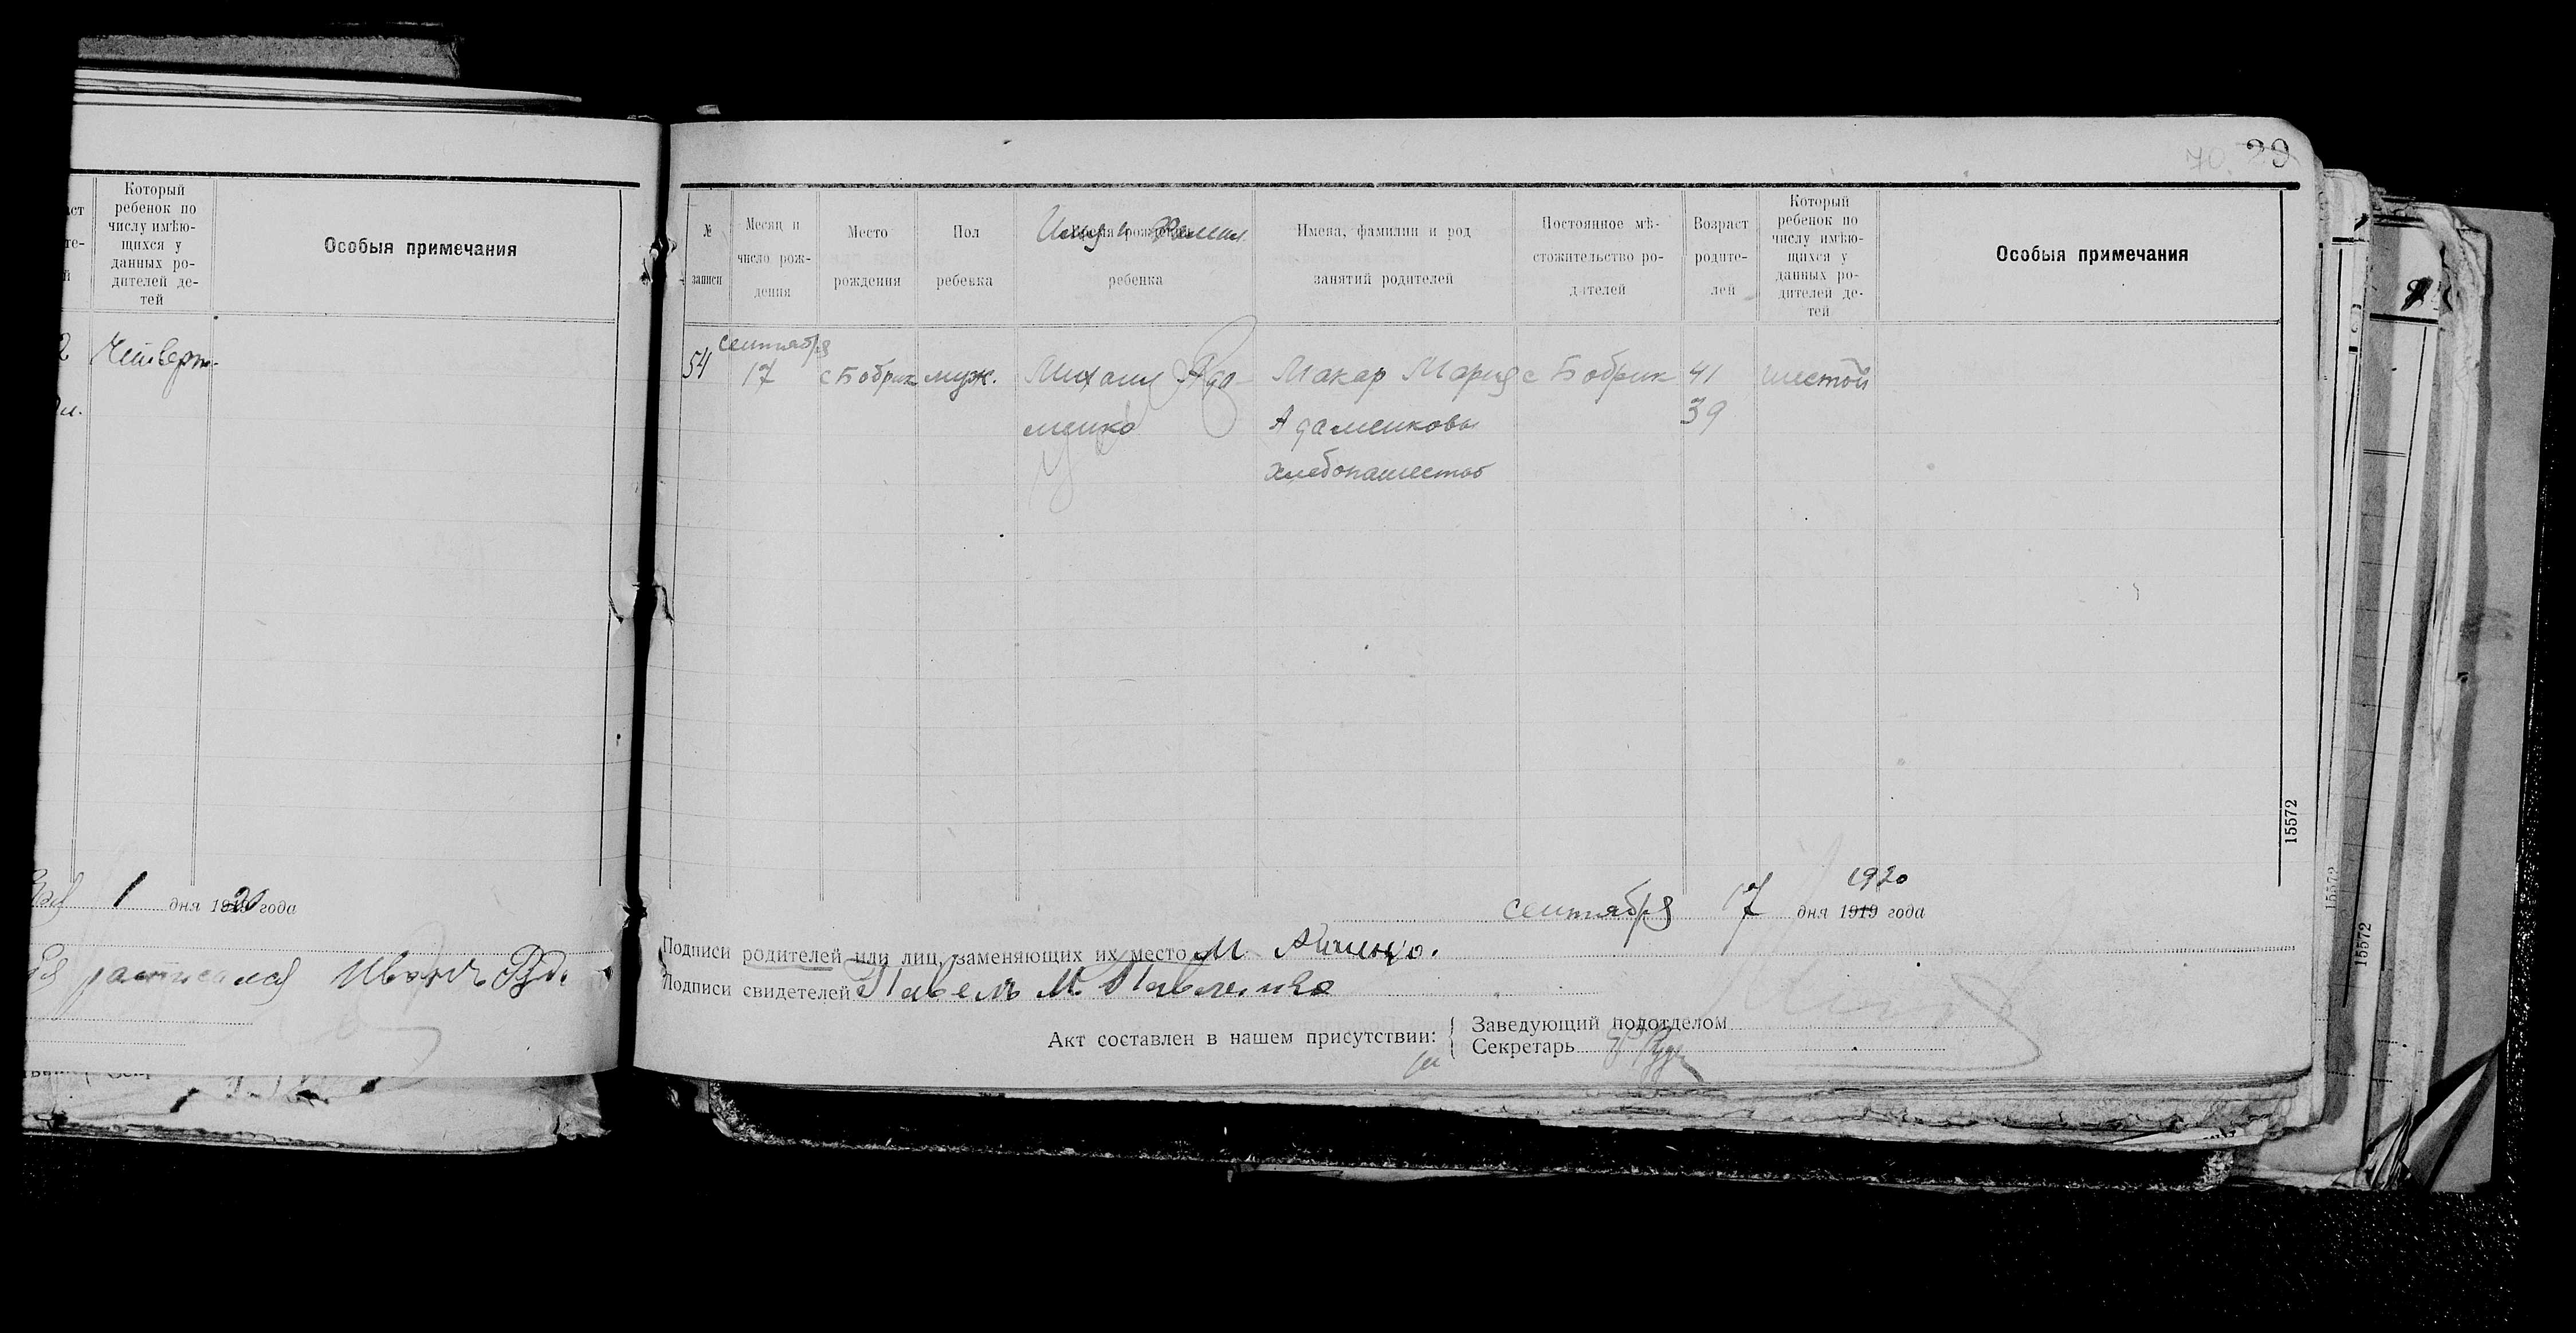 Который
ребенок по
числу имѣю-
щихся у
данных ро-
дителей де-
тей
Особыя примечания
Четверт.
1 дня 1920 года
расписался Иванъ
70. 29
№
записи
Месяц и
число рож-
дения
Место
рождения
Пол
ребенка
Имя и Фамил
ребенка
Имена, фамилии и род
занятий родителей
Постоянное мѣ-
стожительство ро-
дителей
Возраст
родите-
лей
Который
ребенок по
числу имѣю-
щихся у
данных ро-
дителей де-
тей
Особыя примечания
54
сентября
17
с Бобрик
муж.
Михаил Ада-
менко
Макар Мария
Адаменковы
хлебопашество
с Бобрик
41
39
шестой
15572
1920
сентября 17 дня 1919 года
Подписи родителей или лиц, заменяющих их место М.
Подписи свидетелей Павелъ М. Павленко
Акт составлен в нашем присутствии:
Заведующий подотделом
Секретарь
15572
15572